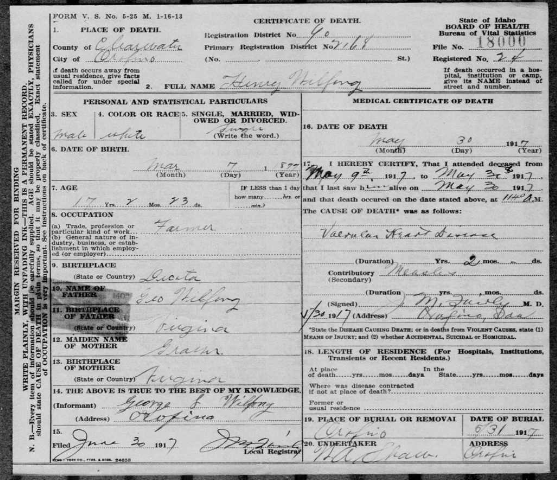 FORM V. S. No. 5-25 M. 1-16-13
CERTIFICATE OF DEATH.
State of Idaho
BOARD OF HEALTH
Bureau of Vital Statistics
1. PLACE OF DEATH.
County of Clearwater
City of Orofino
Registration District No. 90
Primary Registration District No. 2168
(No. St.)
File No. 18000
Registered No. 24
If death occurs away from usual residence, give facts called for under special information.
If death occurred in a hospital, institution or camp, give its NAME instead of street and number.
2. FULL NAME Henry Wilfong
PERSONAL AND STATISTICAL PARTICULARS
3. SEX
male
4. COLOR OR RACE
white
5. SINGLE, MARRIED, WIDOWED OR DIVORCED.
Single
(Write the word.)
6. DATE OF BIRTH.
Mar 7
(Month) (Day) (Year)
7. AGE
17 Yrs. 2 Mos. 23 ds.
IF LESS than 1 day
how many Hrs. or Min.?
8. OCCUPATION
(a) Trade, profession or particular kind of work
Farmer
(b) General nature of industry, business, or establishment in which employed or employer)
9. BIRTHPLACE
(State or Country)
10. NAME OF FATHER
Geo Wilfong
11. BIRTHPLACE OF FATHER
(State or Country)
Virginia
12. MAIDEN NAME OF MOTHER
13. BIRTHPLACE OF MOTHER
(State or Country)
Virginia
14. THE ABOVE IS TRUE TO THE BEST OF MY KNOWLEDGE.
(Informant) George S. Wilfong
(Address) Orofino
15.
Filed June 30 1917
Local Registrar
MEDICAL CERTIFICATE OF DEATH
16. DATE OF DEATH.
May 30 1917
(Month) (Day) (Year)
17. I HEREBY CERTIFY, That I attended deceased from
May 9th, 1917 to May 30th 1917
that I last saw him alive on May 30 1917
and that death occurred on the date stated above, at M.
The CAUSE OF DEATH* was as follows:
Valvular Heart Disease
(Duration) Yrs. 2 mos. ds.
Contributory Measles
(Secondary)
(Duration) Yrs. mos. ds.
(Signed) M. D.
5/30 1917 (Address) Orofino, Ida
*State the DISEASE CAUSING DEATH; or in deaths from VIOLENT CAUSES, state (1) MEANS OF INJURY; and (2) whether ACCIDENTAL, SUICIDAL OR HOMICIDAL.
18. LENGTH OF RESIDENCE (For Hospitals, Institutions, Transients or Recent Residents.)
At place of death yrs. mos. days. In the State yrs. mos. days
Where was disease contracted
if not at place of death?
Former or
usual residence
19. PLACE OF BURIAL OR REMOVAL
Orofino
DATE OF BURIAL
5/31 1917
20. UNDERTAKER
ADDRESS
Orofino
MARGIN RESERVED FOR BINDING
WRITE PLAINLY, WITH UNFADING INK—THIS IS A PERMANENT RECORD.
N. B.—Every item of information should be carefully supplied. AGE should be stated EXACTLY. PHYSICIANS
should state CAUSE OF DEATH in plain terms, so that it may be properly classified. Exact statement
of OCCUPATION is very important. See instructions on back of certificate.